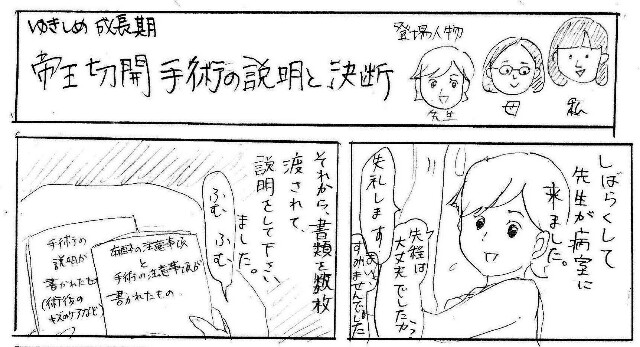 ゆきしめ 成長期
帝王切開 手術の説明と決断
登場人物
先生
母
私
しばらくして
先生が病室に
来ました。
失礼します
先程は
大丈夫でしたか?
すみませんでした
それから、書類を数枚
渡されて、
説明をして下さい
ました。
ふむ ふむ
手術の
説明が
書かれたもの
(術後の
キズのケアなど)
の注意事項
と
手術の注意事項が
書かれたもの